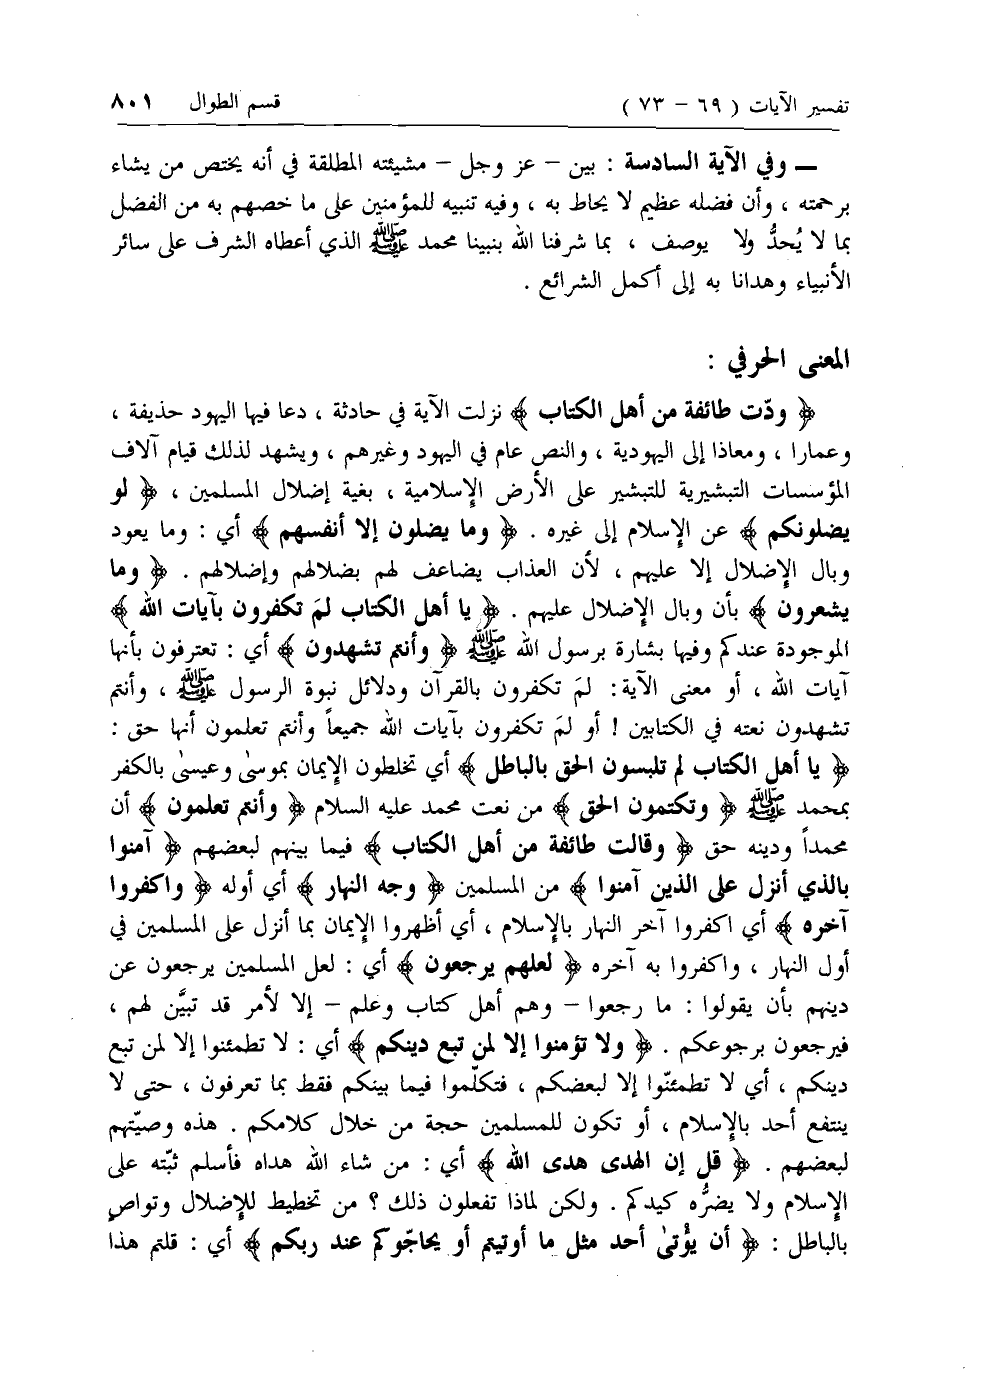 تفسير الآيات ( ٦٩ – ٧٣ ) قسم الطوال ٨٠١
ــ وفي الآية السادسة : بين – عز وجل – مشيئته المطلقة في أنه يختص من يشاء
برحمته ، وأن فضله عظيم لا يحاط به ، وفيه تنبيه للمؤمنين على ما خصهم به من الفضل
بما لا يُحدُّ ولا يوصف ، بما شرفنا الله بنبينا محمد ﷺ الذي أعطاه الشرف على سائر
الأنبياء وهدانا به إلى أكمل الشرائع .
المعنى الحرفي :
﴿ ودّت طائفة من أهل الكتاب ﴾ نزلت الآية في حادثة ، دعا فيها اليهود حذيفة ،
وعمارا ، ومعاذا إلى اليهودية ، والنص عام في اليهود وغيرهم ، ويشهد لذلك قيام آلاف
المؤسسات التبشيرية للتبشير على الأرض الإسلامية ، بغية إضلال المسلمين ، ﴿ لو
يضلونكم ﴾ عن الإسلام إلى غيره . ﴿ وما يضلون إلا أنفسهم ﴾ أي : وما يعود
وبال الإضلال إلا عليهم ، لأن العذاب يضاعف لهم بضلالهم وإضلالهم . ﴿ وما
يشعرون ﴾ بأن وبال الإضلال عليهم . ﴿ يا أهل الكتاب لمَ تكفرون بآيات الله ﴾
الموجودة عندكم وفيها بشارة برسول الله ﷺ ﴿ وأنتم تشهدون ﴾ أي : تعترفون بأنها
آيات الله ، أو معنى الآية: لمَ تكفرون بالقرآن ودلائل نبوة الرسول ﷺ ، وأنتم
تشهدون نعته في الكتابين ! أو لمَ تكفرون بآيات الله جميعاً وأنتم تعلمون أنها حق :
﴿ يا أهل الكتاب لم تلبسون الحق بالباطل ﴾ أي تخلطون الإيمان بموسىٰ وعيسىٰ بالكفر
بمحمد ﷺ ﴿ وتكتمون الحق ﴾ من نعت محمد عليه السلام ﴿ وأنتم تعلمون ﴾ أن
محمداً ودينه حق ﴿ وقالت طائفة من أهل الكتاب ﴾ فيما بينهم لبعضهم ﴿ آمنوا
بالذي أنزل على الذين آمنوا ﴾ من المسلمين ﴿ وجه النهار ﴾ أي أوله ﴿ واكفروا
آخره ﴾ أي اكفروا آخر النهار بالإسلام ، أي أظهروا الإيمان بما أنزل على المسلمين في
أول النهار ، واكفروا به آخره ﴿ لعلهم يرجعون ﴾ أي : لعل المسلمين يرجعون عن
دينهم بأن يقولوا : ما رجعوا – وهم أهل كتاب وعلم – إلا لأمر قد تبيَّن لهم ،
فيرجعون برجوعكم . ﴿ ولا تؤمنوا إلا لمن تبع دينكم ﴾ أي : لا تطمئنوا إلا لمن تبع
دينكم ، أي لا تطمئنّوا إلا لبعضكم ، فتكلّموا فيما بينكم فقط بما تعرفون ، حتى لا
ينتفع أحد بالإسلام ، أو تكون للمسلمين حجة من خلال كلامكم . هذه وصيّتهم
لبعضهم . ﴿ قل إن الهدى هدى الله ﴾ أي : من شاء الله هداه فأسلم ثبّته على
الإسلام ولا يضرُّه كيدكم . ولكن لماذا تفعلون ذلك ؟ من تخطيط للإضلال وتواصٍ
بالباطل : ﴿ أن يؤْتىٰ أحد مثل ما أوتيتم أو يحاجّوكم عند ربكم ﴾ أي : قلتم هذا